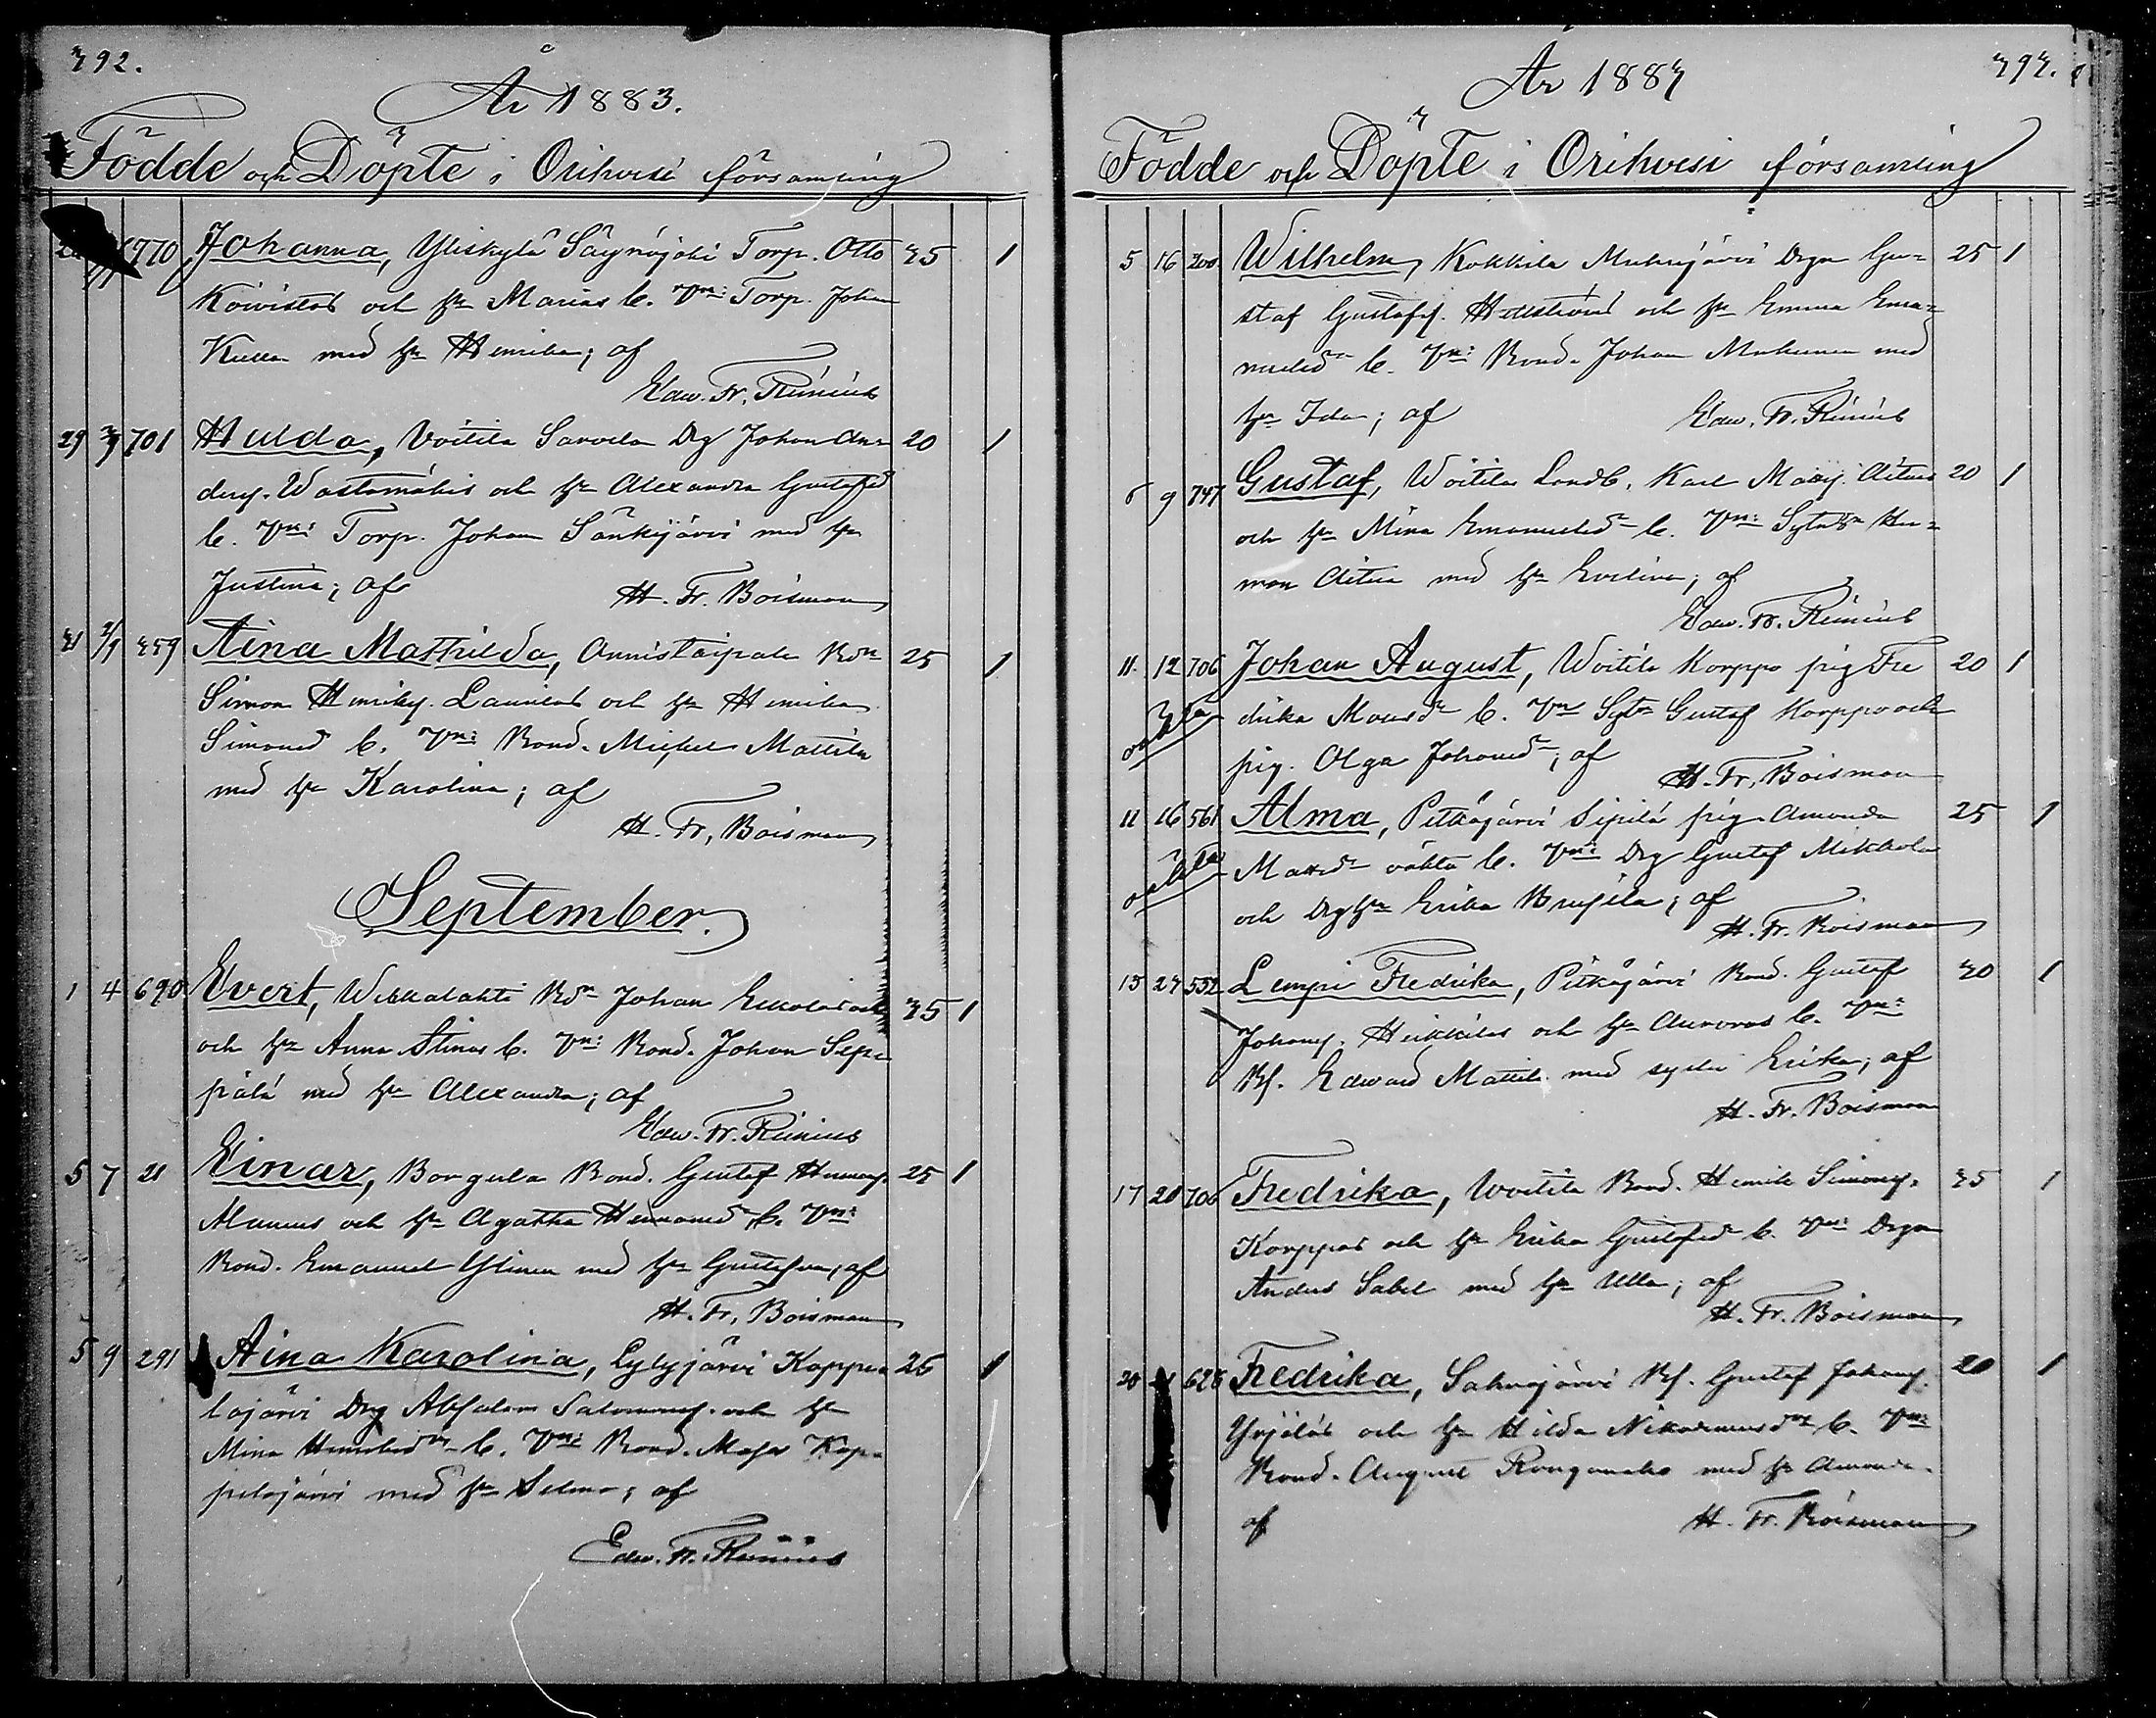 392.
År 1883.
Födde och Döpte i Orihvesi församling
770 Johanna, Yliskylä Säynäjoki Torp. Otto 35 1
Koivistos och hu Marias b. Vn: Torp. Johan
Kulla med hu Henrika; af
Edw. Fr. Rünius
29 2/9 701 Hulda, Voitila Sarvela Drg Johan An= 20 1
dersj. Wastamäkis och hu Alexandra Gustafsd
b. Vn: Torp. Johan Sänkijärvi med hu
Justina; af H. Fr. Boisman
31 2/9 359 Aina Mathilda, Onnistaipale Bdn 25 1
Simon Henriksj. Laurilas och hu Henrika
Simonsd b. Vn: Bond. Michel Mattila
med hu Karolina; af
H. Fr. Boisman
September.
1 4 690 Evert, Wihkalahti Bdn Johan Erkolas och 35 1
och hu Anna Stinas b. Vn: Bond. Johan Sep=
pälä med hu Alexandra; af
Edw. Fr. Rünius
5 7 21 Einar, Bongula Bond. Gustaf Hermansj. 25 1
Mannus och hu Agatha Hermansd b. Vn:
Bond. Emanuel Ylinen med hu Gustafva; af
H. Fr. Boisman
5 9 291 Aina Karolina, Lylyjärvi Koppe= 25 1
lojärvi Drg Absalom Salomonsj. och hu
Mina b. Vn: Bond. Mats Kop=
pelojärvi med hu Selma; af
Edw. Fr. Rünius
År 1883
393.
Födde och Döpte i Orihvesi församling
5 16 300 Wilhelm, Kokkila Muhujärvi Drgn Gu= 25 1
staf Gustafsj. Hellströms och hu Emma Ema=
nuelsdr b. Vn: Bond. Johan Mukunen med
hu Ida; af Edw. Fr. Rünius
6 9 747 Gustaf, Woitila Landb. Karl Aitus 20 1
och hu Mina Emanuelsdr b. Vn: Sytn Her=
man Aitus med hu Evelina; af
Edw. Fr. Rünius
11. 12 706 Johan August, Woitila Korppo pig Fre 20 1
oäkta drika Mattsdr b. Vn Sytn Gustaf Korppo och
pig. Olga Johansdr; af
H. Fr. Boisman
11 16 561 Alma, Pitkäjärvi Sipilä pig. Amanda 25 1
oäkta Mattsdr oäkta b. Vn: Drg Gustaf Mikkola
och Drghu Erika; af
H. Fr. Boisman
13 23 552 Lempi Fredrika, Pitkäjärvi Bond. Gustaf 30 1
Johansj. Heikkilas och hu Auroras b. Vn:
Bs. Edward Mattila med syster Erika; af
H. Fr. Boisman
17 20 706 Fredrika, Woitila Bond. Henrik Simonsj. 35 1
Korppos och hu Erika Gustafsd b. Vn: Drgn
Anders Sabel med hu Ulla; af
H. Fr. Boisman
20 628 Fredrika, Sahrajärvi Bs. Gustaf Johansj. 20 1
Yrjöläs och hu Hilda b. Vn:
Bond. August med hu Amanda.
af H. Fr. Boisman